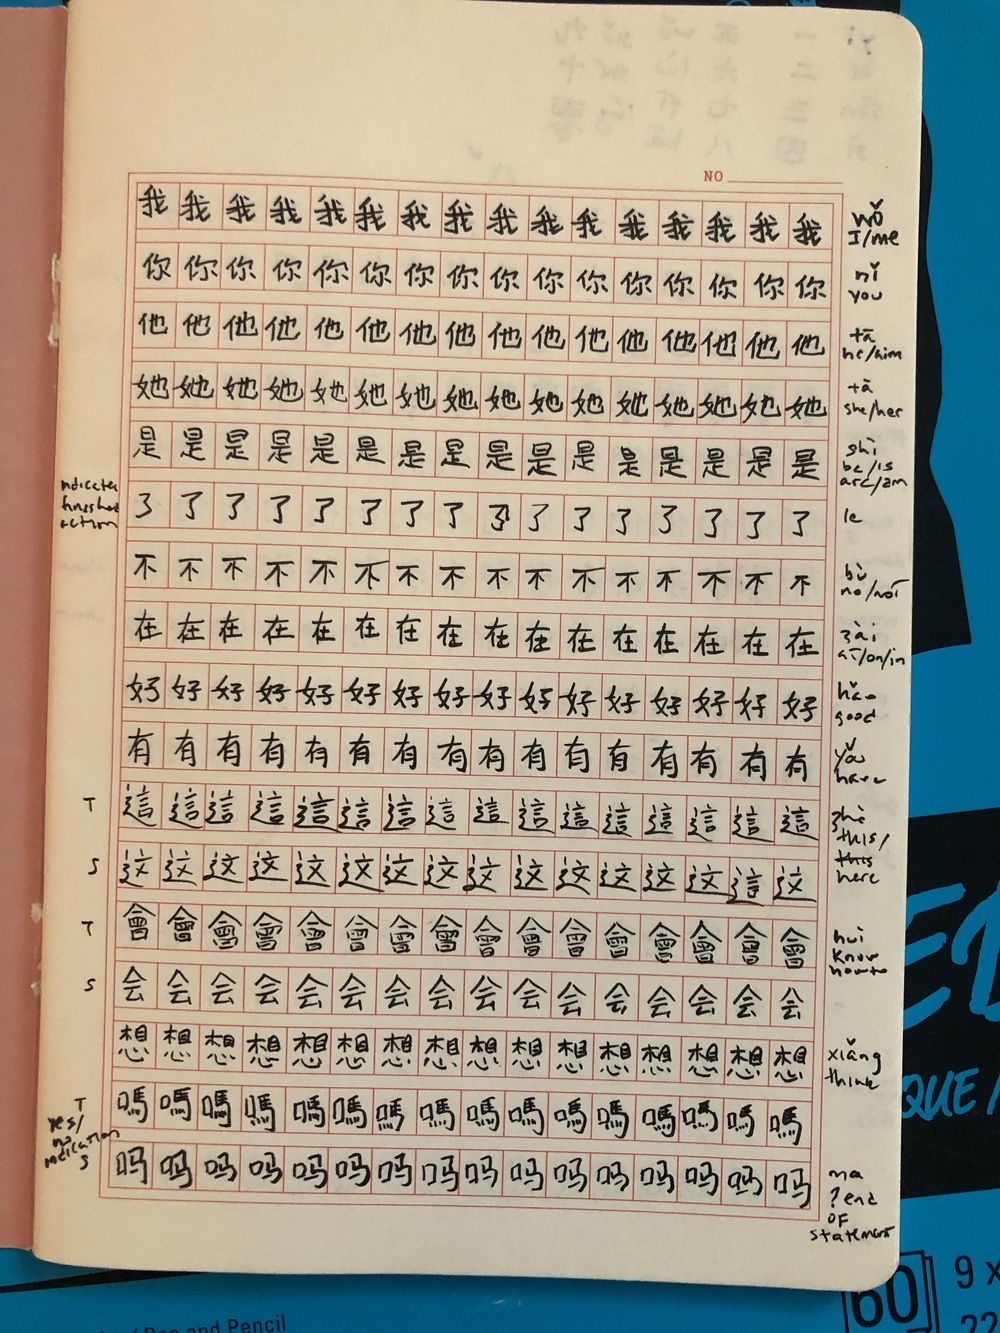 NO
我我我我我我我我我我我我我我我我 wǒ
I/me
你你你你你你你你你你你你你你你你 nǐ
you
他他他他他他他他他他他他他他他他 tā
he/him
她她她她她她她她她她她她她她她她 tā
she/her
是是是是是是是是是是是是是是是是 shì
be/is
are/am
indicates
finished
action
了了了了了了了了了了了了了了了了 le
不不不不不不不不不不不不不不不不 bù
no/not
在在在在在在在在在在在在在在在在 zài
at/on/in
好好好好好好好好好好好好好好好好 hǎo
good
有有有有有有有有有有有有有有有有 yǒu
have
T 這這這這這這這這這這這這這這這這 zhè
this/
this
S 这这这这这这这这这这这这这这這这 here
T 會會會會會會會會會會會會會會會會 huì
know
how to
S 会会会会会会会会会会会会会会会会
想想想想想想想想想想想想想想想想 xiǎng
think
T 嗎嗎嗎嗎嗎嗎嗎嗎嗎嗎嗎嗎嗎嗎嗎嗎
yes/
no
indication
S 吗吗吗吗吗吗吗吗吗吗吗吗吗吗吗吗 ma
? end
of
statement
QUE
Pen and Pencil
60
9 x
22